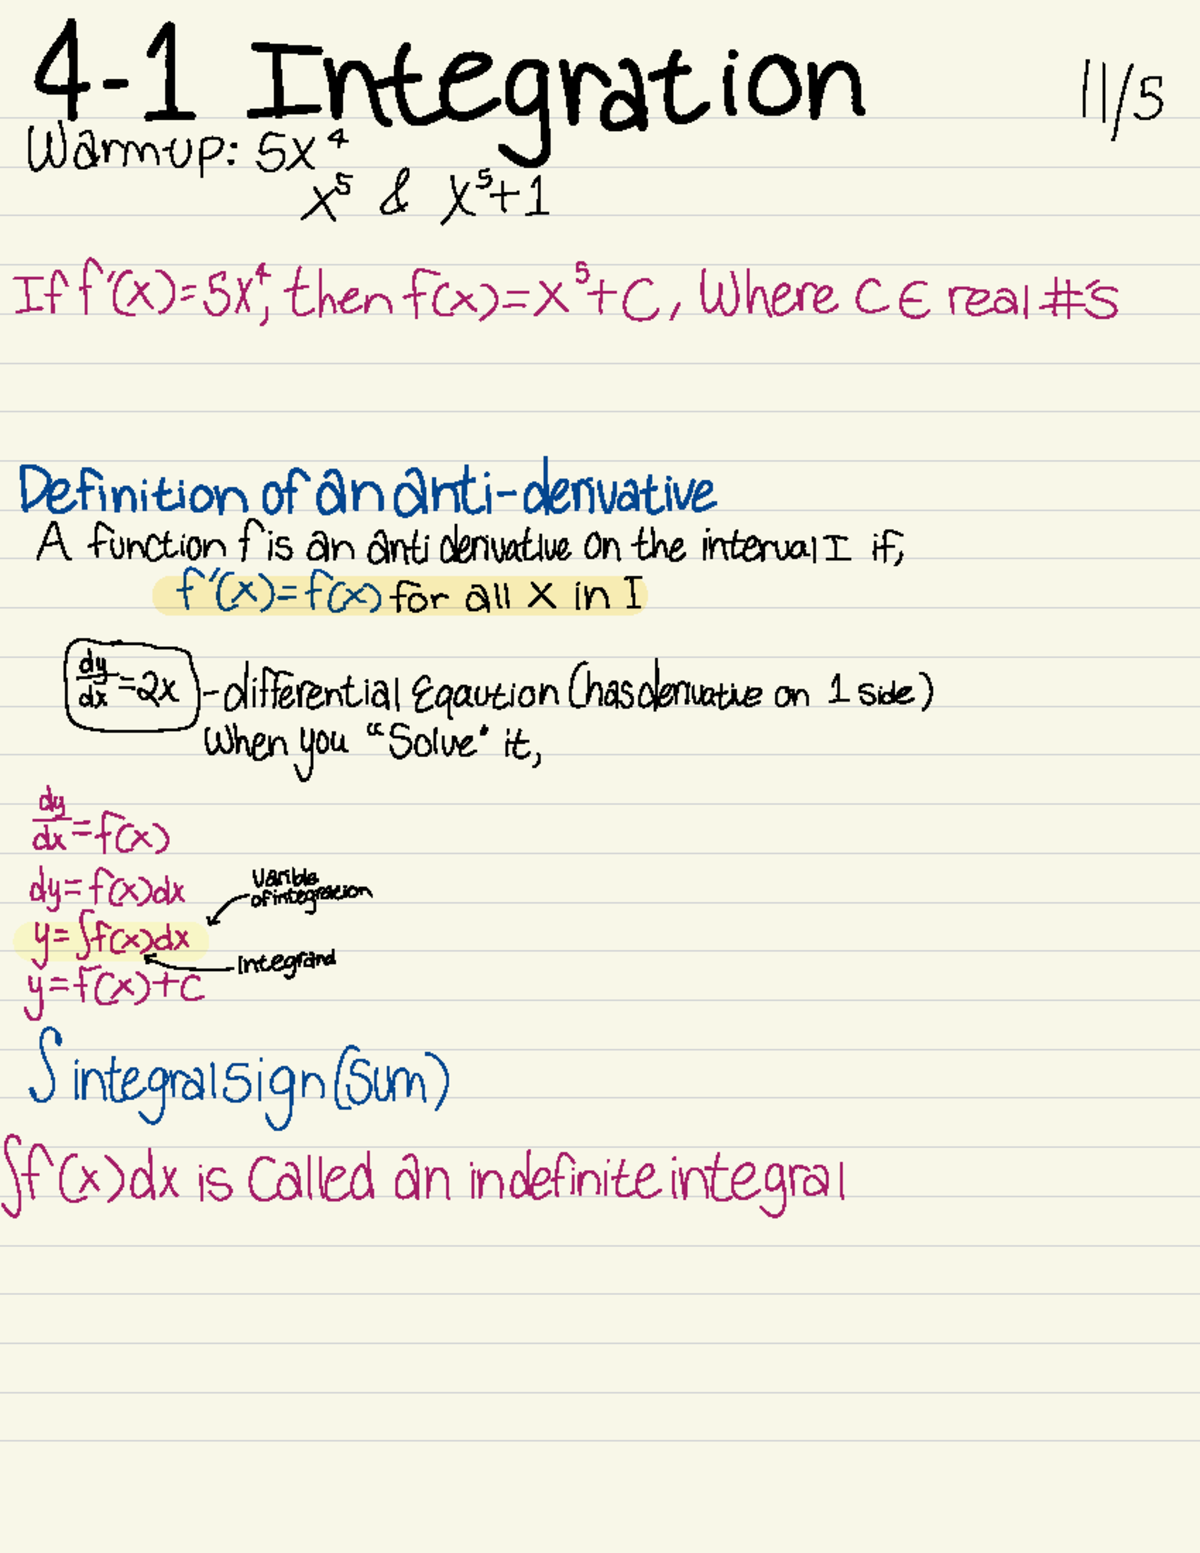 4-1 Integration 11/5
Warm-up: 5x⁴
x⁵ & x⁵+1
If f'(x)=5x⁴, then f(x)=x⁵+C, Where C∈ real #'s
Definition of an anti-derivative
A function f is an anti derivative on the interval I if,
f'(x)=f(x) for all x in I
dy/dx=2x -differential Eqaution (has derivative on 1 side)
When you "Solve" it,
dy/dx=f(x)
dy=f(x)dx
Varible
of integration
y=∫f(x)dx
integrand
y=F(x)+C
∫ integral sign (Sum)
∫f(x)dx is Called an indefinite integral